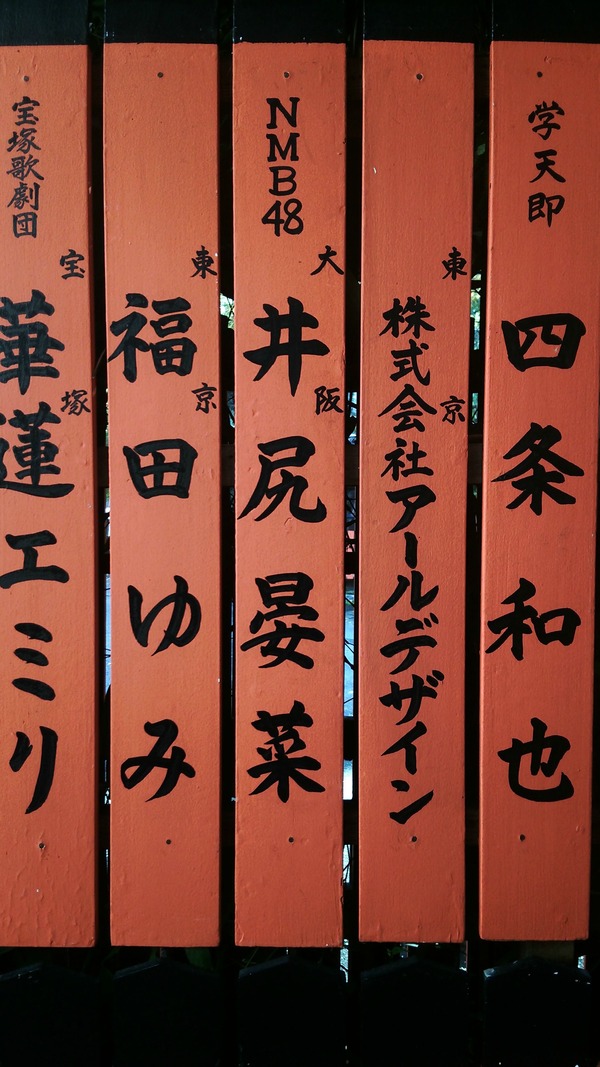 学天即
四条和也
東京
株式会社アールデザイン
NMB48
大阪
井尻晏菜
東京
福田ゆみ
宝塚歌劇団
宝塚
華蓮エミリ